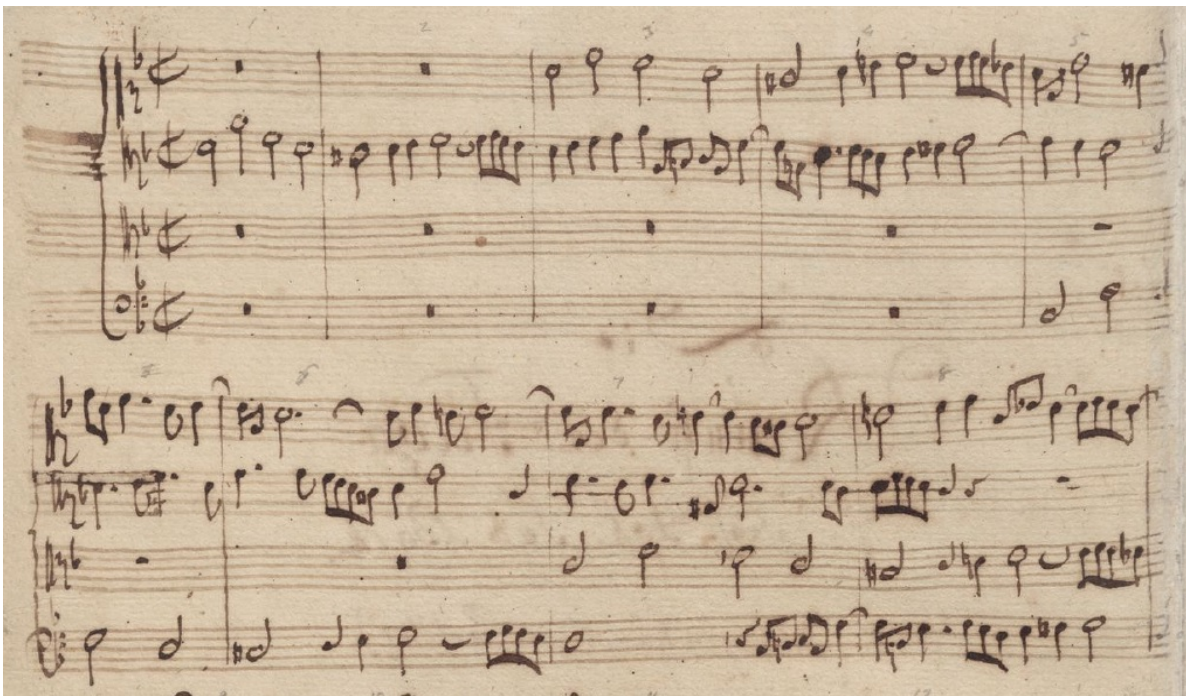 2 3 4 5
5 6 7 8